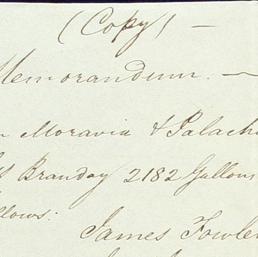 (Copy) —
Memorandum. —
Moravia & Palach
Branday 2182 Gallons
llows:
James Fowle